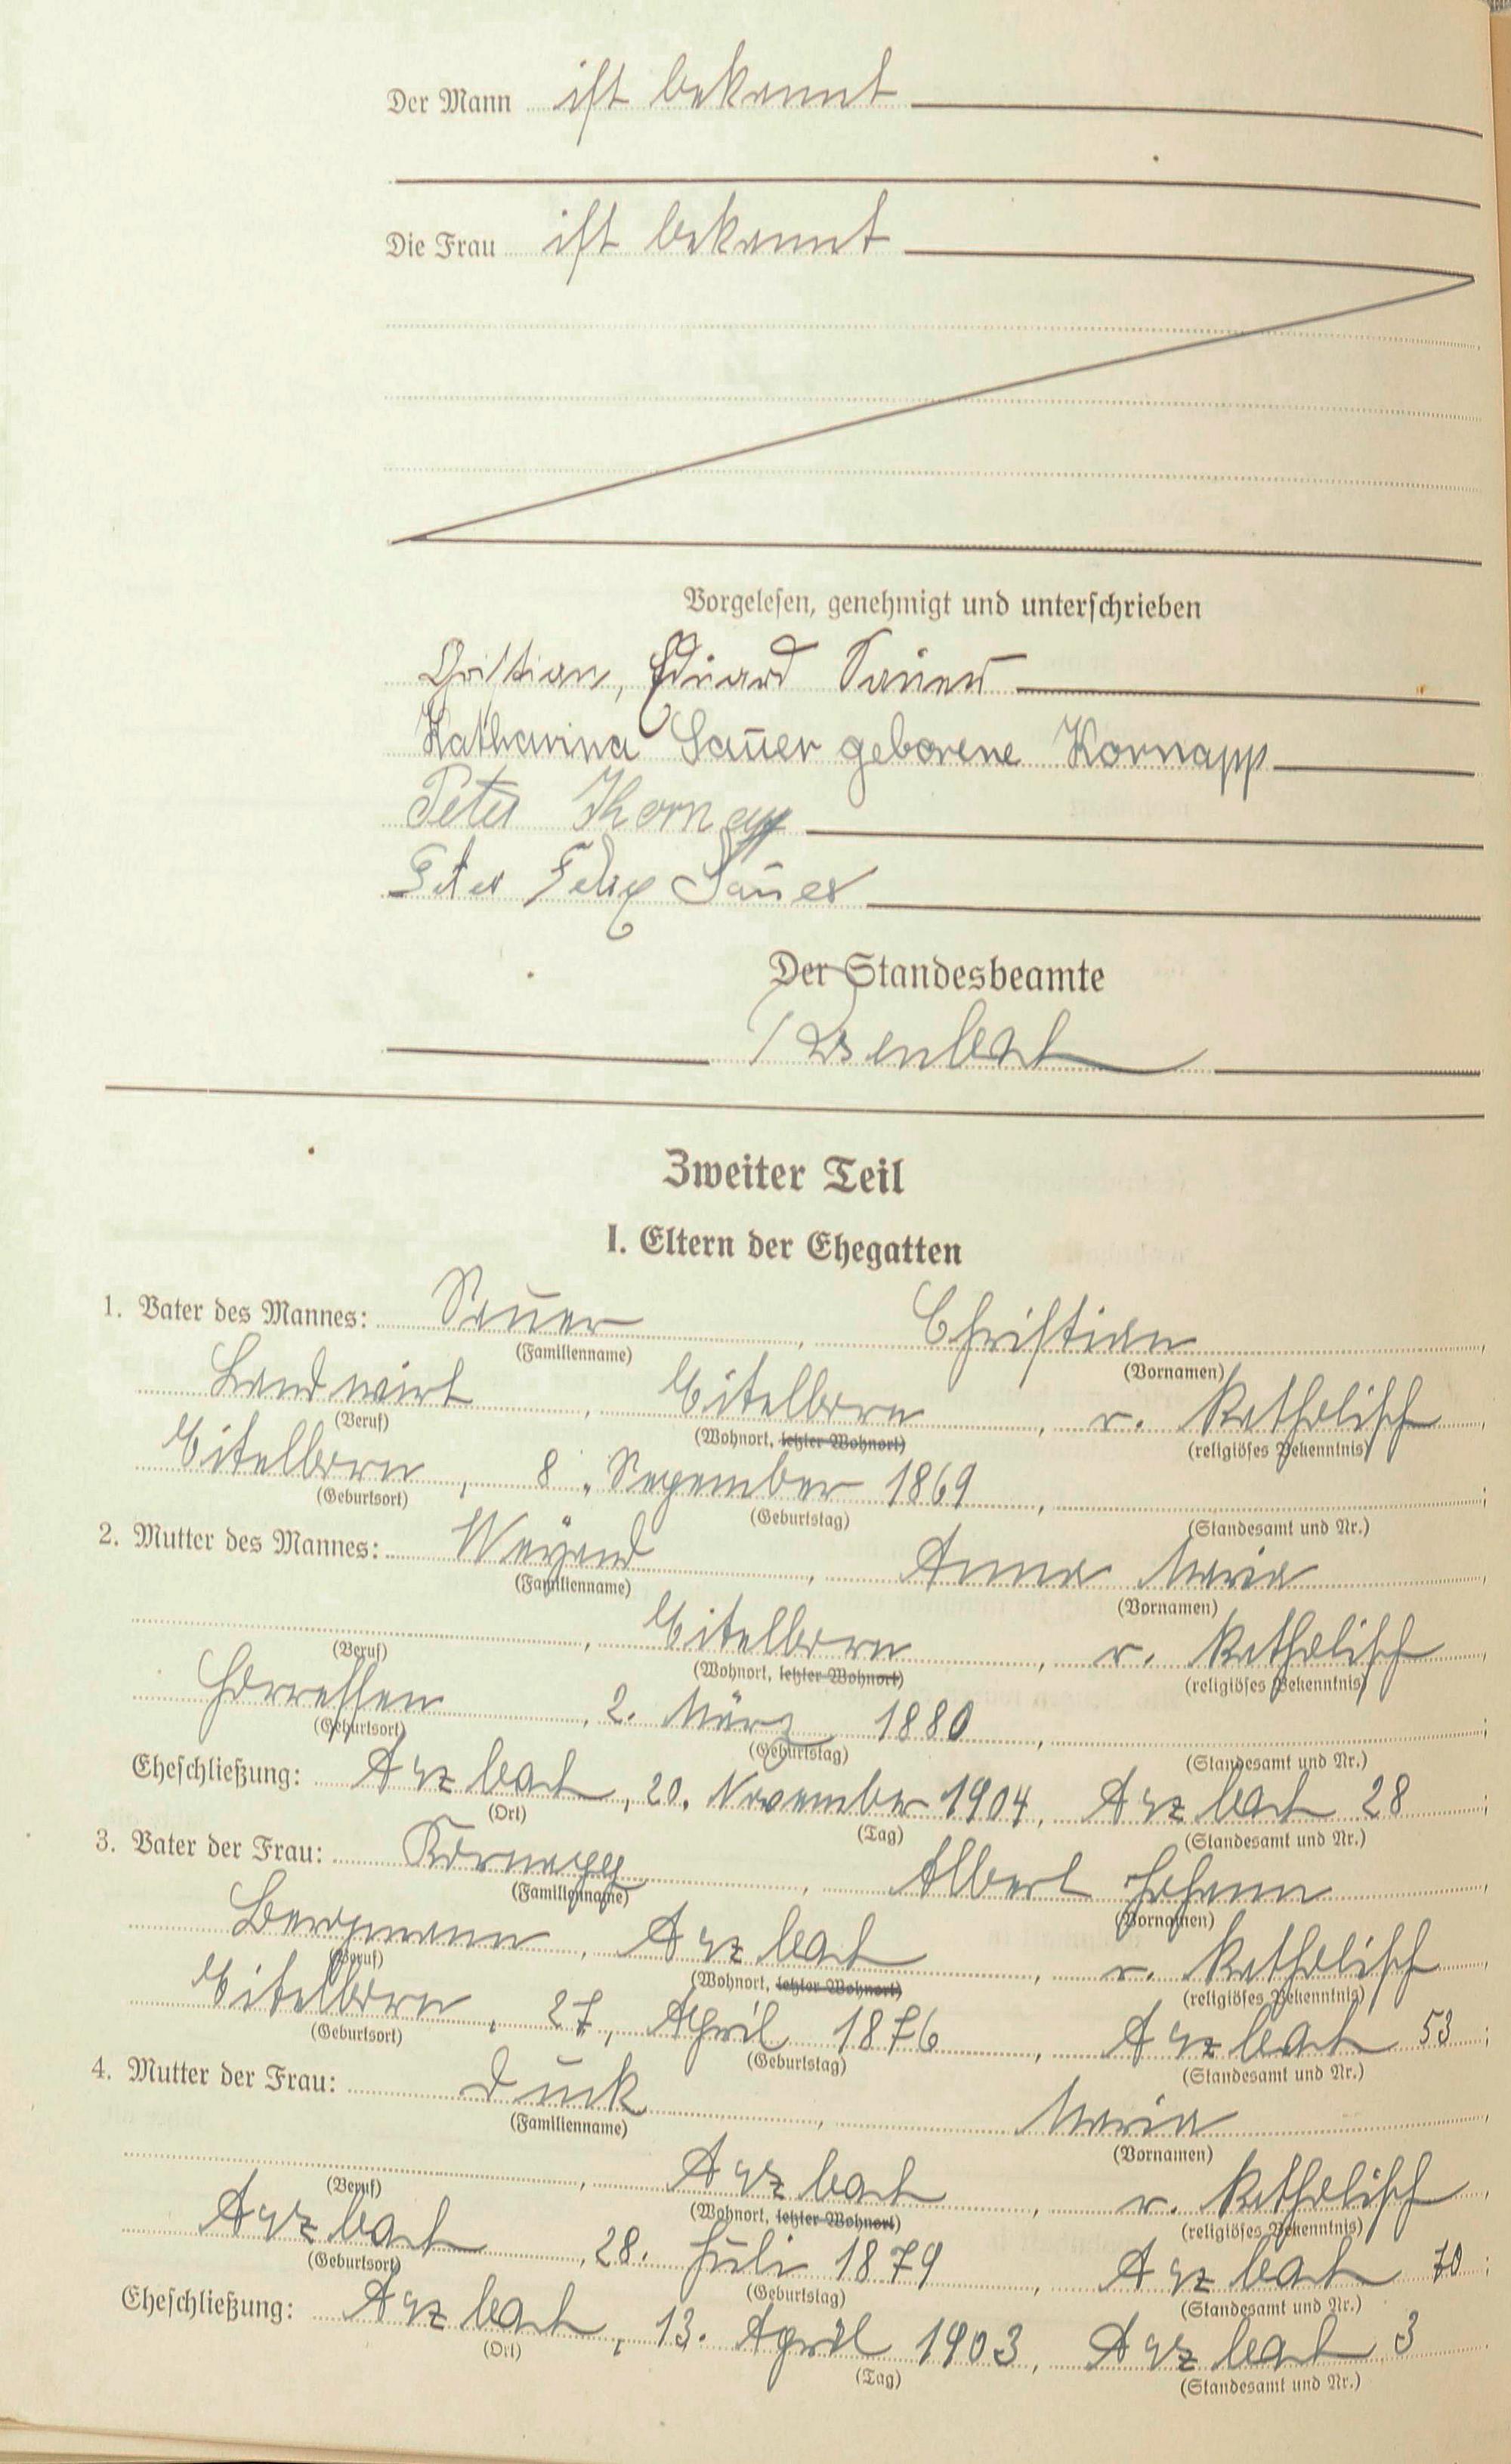 Der Mann ist bekannt
Die Frau ist bekannt
Vorgelesen, genehmigt und unterschrieben
Christian, Eduard Sauer
Katharina Sauer geborene Kornapp
Peter Kornapp
Peter Felix Sauer
Der Standesbeamte
Zweiter Teil
I. Eltern der Ehegatten
1. Vater des Mannes: Sauer, Christian,
(Familienname) (Vornamen)
Landwirt, Eitelborn, r. katholisch,
(Beruf) (Wohnort, letzter Wohnort) (religiöses Bekenntnis)
Eitelborn, 8. September 1869, ;
(Geburtsort) (Geburtstag) (Standesamt und Nr.)
2. Mutter des Mannes: Weyand, Anna Maria,
(Familienname) (Vornamen)
, Eitelborn, r. katholisch,
(Beruf) (Wohnort, letzter Wohnort) (religiöses Bekenntnis)
Horressen, 2. März 1880, ;
(Geburtsort) (Geburtstag) (Standesamt und Nr.)
Eheschließung: Arzbach, 20. November 1904, Arzbach 28;
(Ort) (Tag) (Standesamt und Nr.)
3. Vater der Frau: Kornapp, Albert Johann,
(Familienname) (Vornamen)
Bergmann, Arzbach, r. katholisch,
(Beruf) (Wohnort, letzter Wohnort) (religiöses Bekenntnis)
Eitelborn, 27. April 1876, Arzbach 53;
(Geburtsort) (Geburtstag) (Standesamt und Nr.)
4. Mutter der Frau: Duck, Maria,
(Familienname) (Vornamen)
, Arzbach, r. katholisch,
(Beruf) (Wohnort, letzter Wohnort) (religiöses Bekenntnis)
Arzbach, 28. Juli 1879, Arzbach 70;
(Geburtsort) (Geburtstag) (Standesamt und Nr.)
Eheschließung: Arzbach, 13. April 1903, Arzbach 3
(Ort) (Tag) (Standesamt und Nr.)